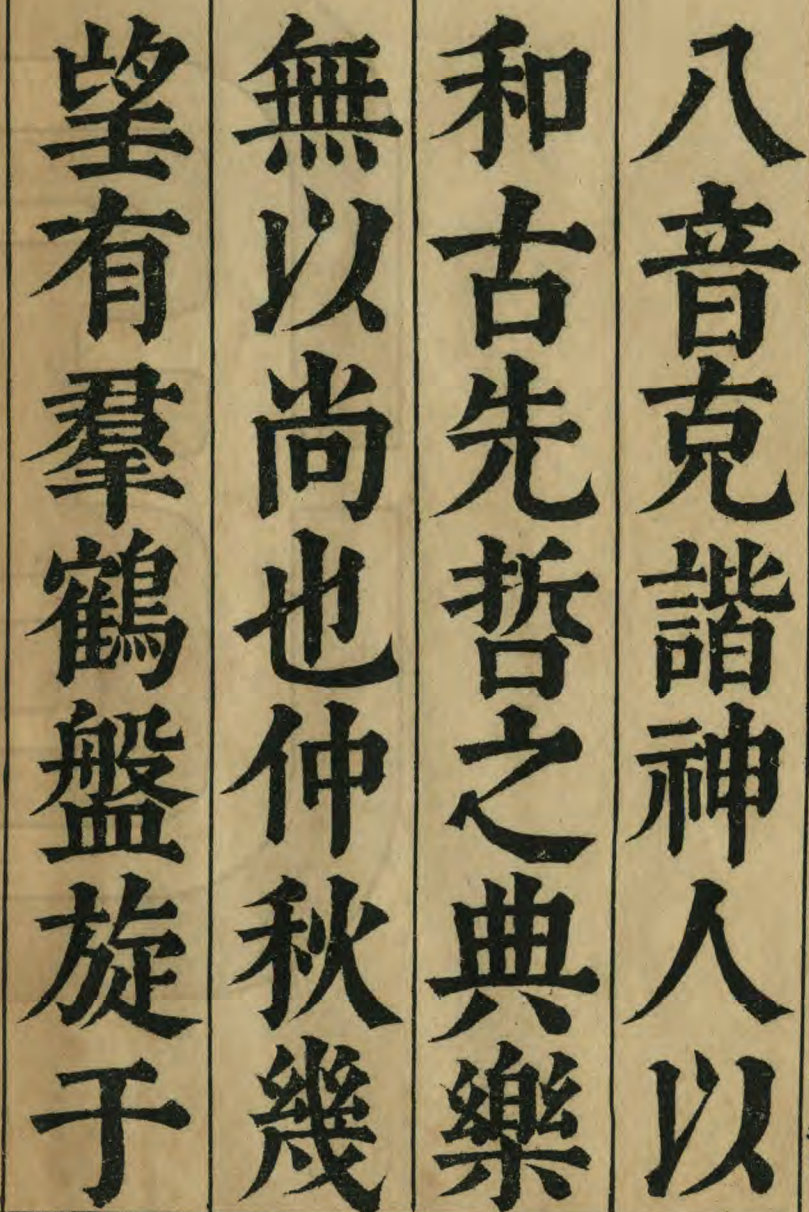 八音克諧神人以
和古先哲之典樂
無以尚也仲秋幾
望有羣鶴盤旋于